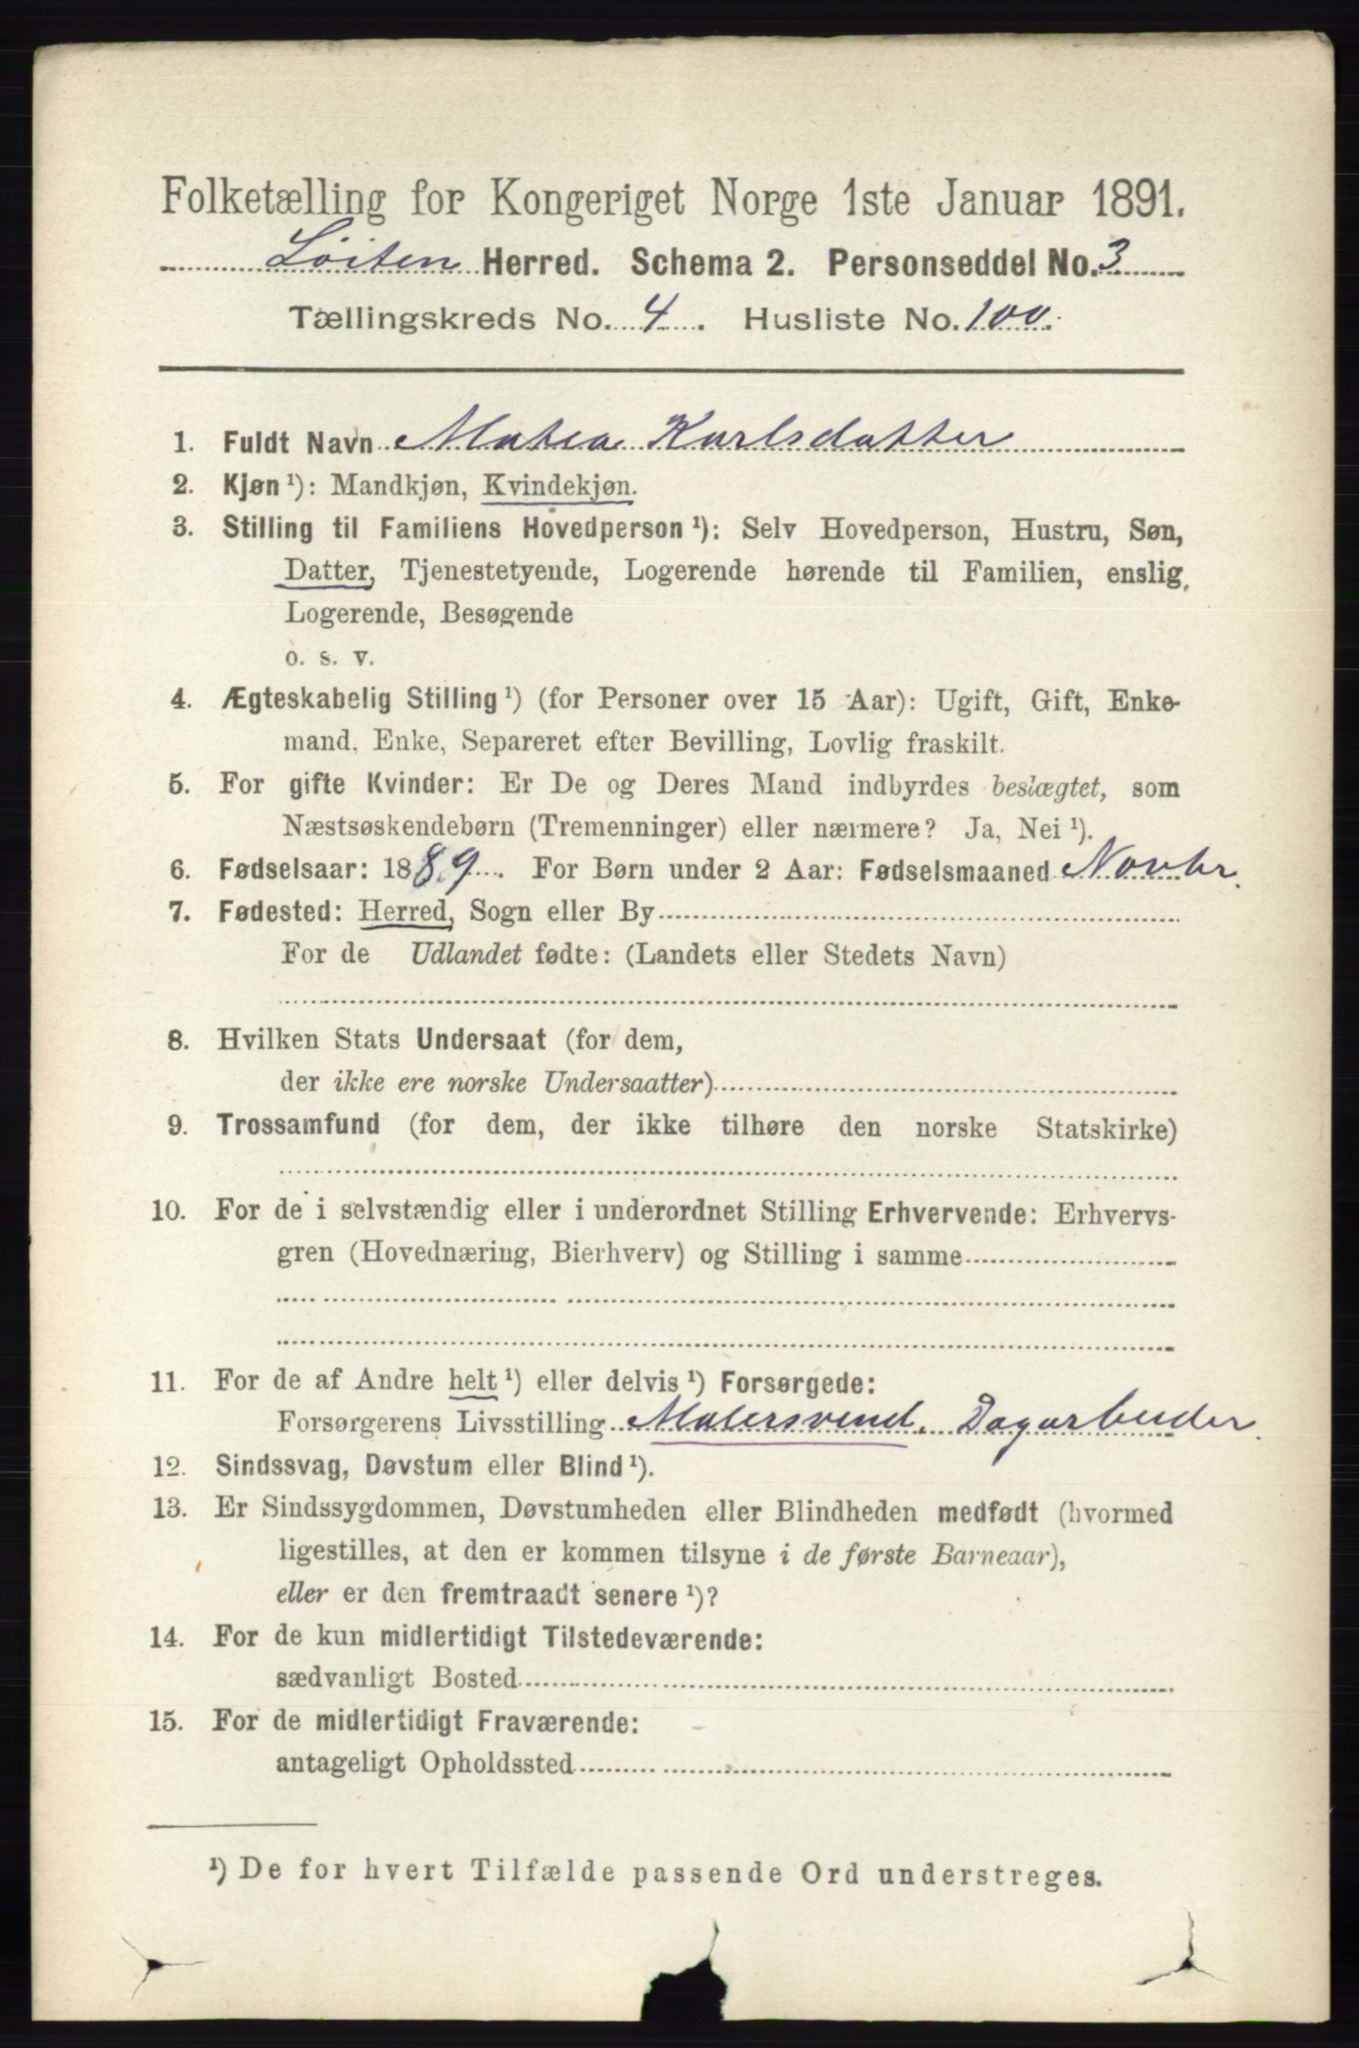 Folketælling for Kongeriget Norge 1ste Januar 1891.
Löiten Herred. Schema 2. Personseddel No. 3
Tællingskreds No. 4. Husliste No. 100.
1. Fuldt Navn Matea Karlsdatter
2. Kjøn ¹): Mandkjøn, Kvindekjøn.
3. Stilling til Familiens Hovedperson ¹): Selv Hovedperson, Hustru, Søn,
Datter, Tjenestetyende, Logerende hørende til Familien, enslig
Logerende, Besøgende
o. s. v.
4. Ægteskabelig Stilling ¹) (for Personer over 15 Aar): Ugift, Gift, Enke-
mand, Enke, Separeret efter Bevilling, Lovlig fraskilt.
5. For gifte Kvinder: Er De og Deres Mand indbyrdes beslægtet, som
Næstsøskendebørn (Tremenninger) eller nærmere? Ja, Nei ¹).
6. Fødselsaar: 1889. For Børn under 2 Aar: Fødselsmaaned Novbr.
7. Fødested: Herred, Sogn eller By
For de Udlandet fødte: (Landets eller Stedets Navn)
8. Hvilken Stats Undersaat (for dem,
der ikke ere norske Undersaatter)
9. Trossamfund (for dem, der ikke tilhøre den norske Statskirke)
10. For de i selvstændig eller i underordnet Stilling Erhvervende: Erhvervs-
gren (Hovednæring, Bierhverv) og Stilling i samme
11. For de af Andre helt ¹) eller delvis ¹) Forsørgede:
Forsørgerens Livsstilling Malersvend. Dagarbeider.
12. Sindssvag, Døvstum eller Blind ¹).
13. Er Sindssygdommen, Døvstumheden eller Blindheden medfødt (hvormed
ligestilles, at den er kommen tilsyne i de første Barneaar),
eller er den fremtraadt senere ¹)?
14. For de kun midlertidigt Tilstedeværende:
sædvanligt Bosted
15. For de midlertidigt Fraværende:
antageligt Opholdssted
¹) De for hvert Tilfælde passende Ord understreges.